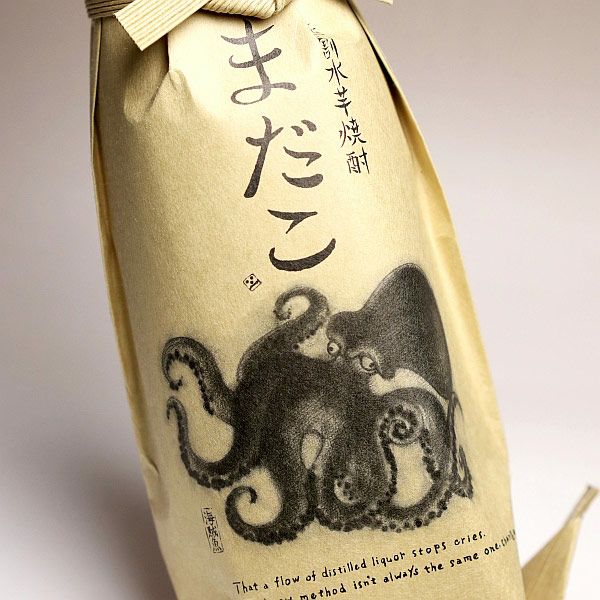 割水芋焼酎
まだこ
海賊魚
That a flow of distilled liquor stops cries.
method isn't always the same one.